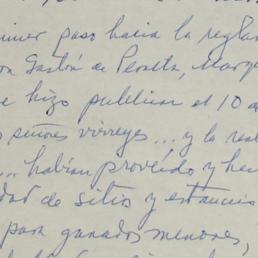 imer paso hacia la regla
on Gastón de Peralta, Marqu
e hizo publicar el 10 d
s señores virreyes... y la real
... habían proveído y he
dad de sitios y estancias
para ganados menores,